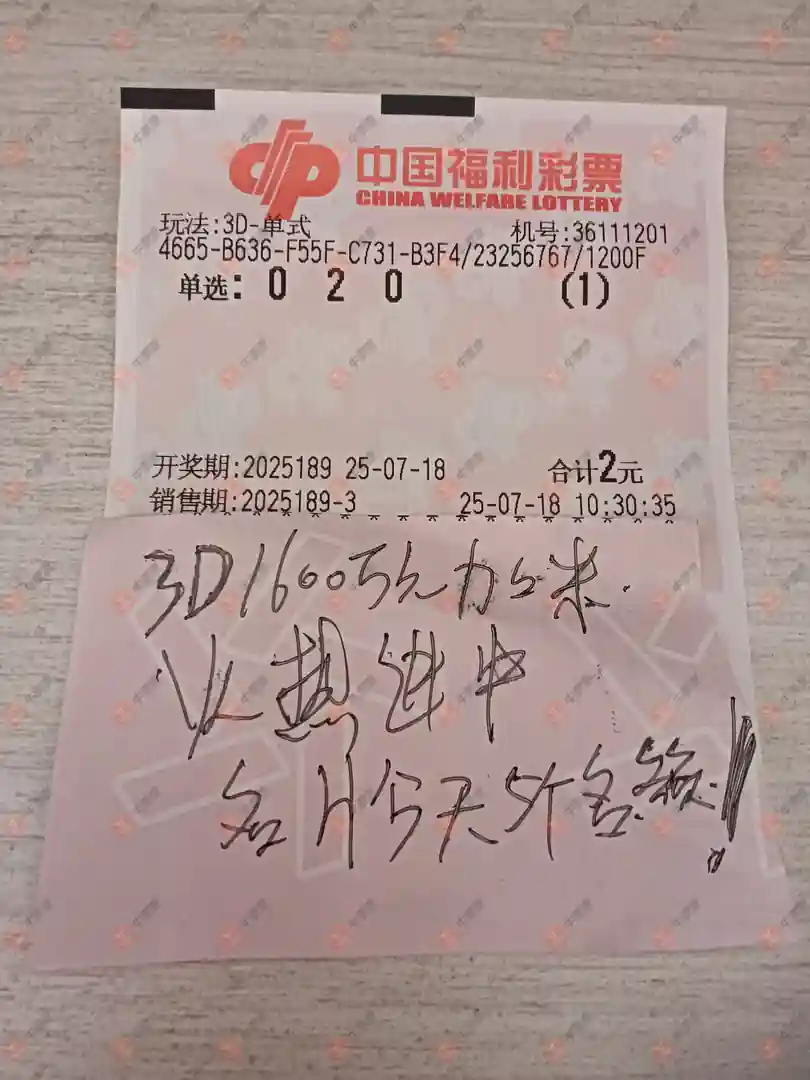 中国福利彩票
CHINA WELFARE LOTTERY
玩法:3D-单式 机号:36111201
4665-B636-F55F-C731-B3F4/23256767/1200F
单选: 0 2 0 (1)
开奖期:2025189 25-07-18 合计2元
销售期:2025189-3 25-07-18 10:30:35
3D1600万元加奖.
火热进中
名片今天5个名额!